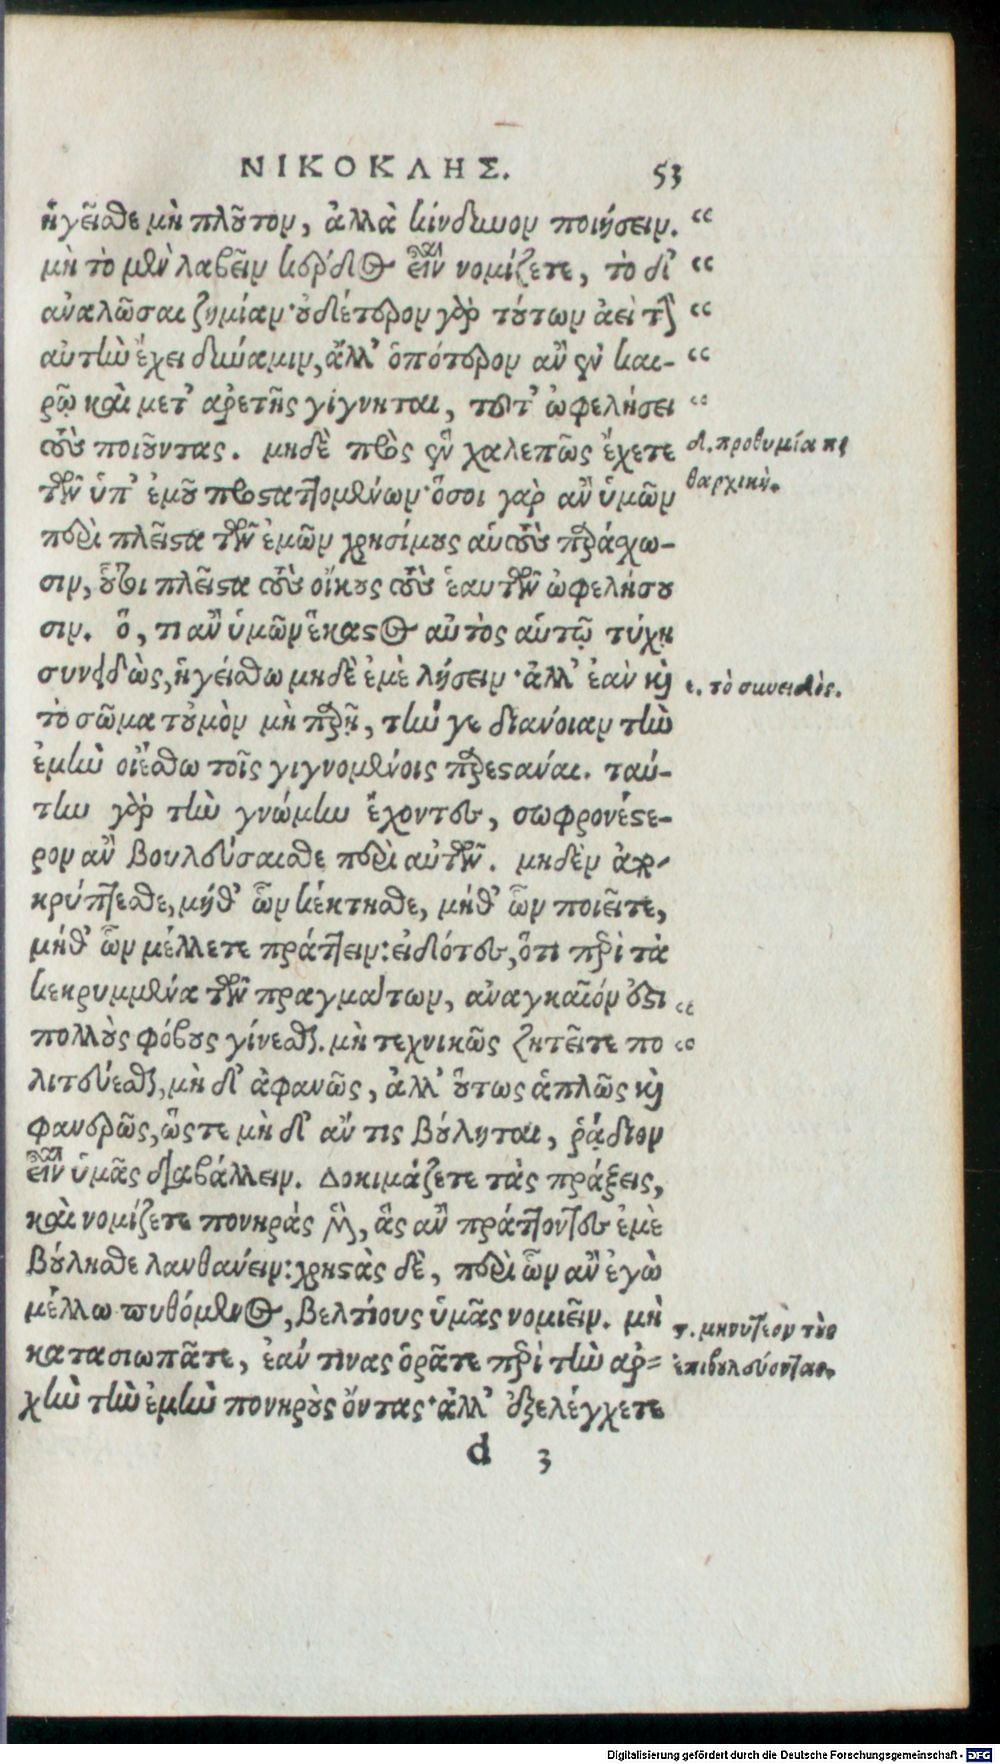 ΝΙΚΟΚΛΗΣ. 53
ἡγεῖσθε μὴ πλοῦτον, ἀλλὰ κίνδυνον ποιήσειν. “
μὴ τὸ μὲν λαβεῖν κέρδος εἶναι νομίζετε, τὸ δ’ “
ἀναλῶσαι ζημίαν· οὐδέτερον γὰρ τούτων ἀεὶ τὴν “
αὐτὴν ἔχει δύναμιν, ἀλλ’ ὁπότερον ἂν ἐν και- “
ρῷ καὶ μετ’ ἀρετῆς γίγνηται, τοῦτ’ ὠφελήσει “
τοὺς ποιοῦντας. μηδὲ πρὸς ἓν χαλεπῶς ἔχετε
δ. προθυμία πει
τῶν ὑπ’ ἐμοῦ προσταττομένων· ὅσοι γὰρ ἂν ὑμῶν
θαρχική.
περὶ πλεῖστα τῶν ἐμῶν χρησίμους αὑτοὺς παράσχω-
σιν, οὗτοι πλεῖστα τοὺς οἴκους τοὺς ἑαυτῶν ὠφελήσου
σιν. ὅ, τι ἂν ὑμῶν ἕκαστος αὐτὸς αὑτῷ τύχῃ
συνειδὼς, ἡγείσθω μηδὲ ἐμὲ λήσειν· ἀλλ’ ἐὰν καὶ
ε. τὸ συνειδός.
τὸ σῶμα τοὐμὸν μὴ παρῇ, τήν γε διάνοιαν τὴν
ἐμὴν οἰέσθω τοῖς γιγνομένοις παρεστάναι. ταύ-
την γὰρ τὴν γνώμην ἔχοντες, σωφρονέστε-
ρον ἂν βουλεύσαισθε περὶ αὐτῶν. μηδὲν ἀπο-
κρύπτεσθε, μήθ’ ὧν κέκτησθε, μήθ’ ὧν ποιεῖτε,
μήθ’ ὧν μέλλετε πράττειν: εἰδότες, ὅτι περὶ τὰ
κεκρυμμένα τῶν πραγμάτων, ἀναγκαῖόν ἐστι “
πολλοὺς φόβους γίνεσθαι. μὴ τεχνικῶς ζητεῖτε πο “
λιτεύεσθαι, μὴ δ’ ἀφανῶς, ἀλλ’ οὕτως ἁπλῶς καὶ
φανερῶς, ὥστε μὴ δ’ ἄν τις βούληται, ῥᾴδιον
εἶναι ὑμᾶς διαβάλλειν. Δοκιμάζετε τὰς πράξεις,
καὶ νομίζετε πονηρὰς μὲν, ἃς ἂν πράττοντες ἐμὲ
βούλησθε λανθάνειν: χρηστὰς δὲ, περὶ ὧν ἂν ἐγὼ
μέλλω πυθόμενος, βελτίους ὑμᾶς νομιεῖν. μὴ
ϛ. μηνυτέον τοὺς
κατασιωπᾶτε, ἐάν τινας ὁρᾶτε περὶ τὴν ἀρ-
ἐπιβουλεύοντας.
χὴν τὴν ἐμὴν πονηροὺς ὄντας· ἀλλ’ ἐξελέγχετε
d 3
Digitalisierung gefördert durch die Deutsche Forschungsgemeinschaft - DFG